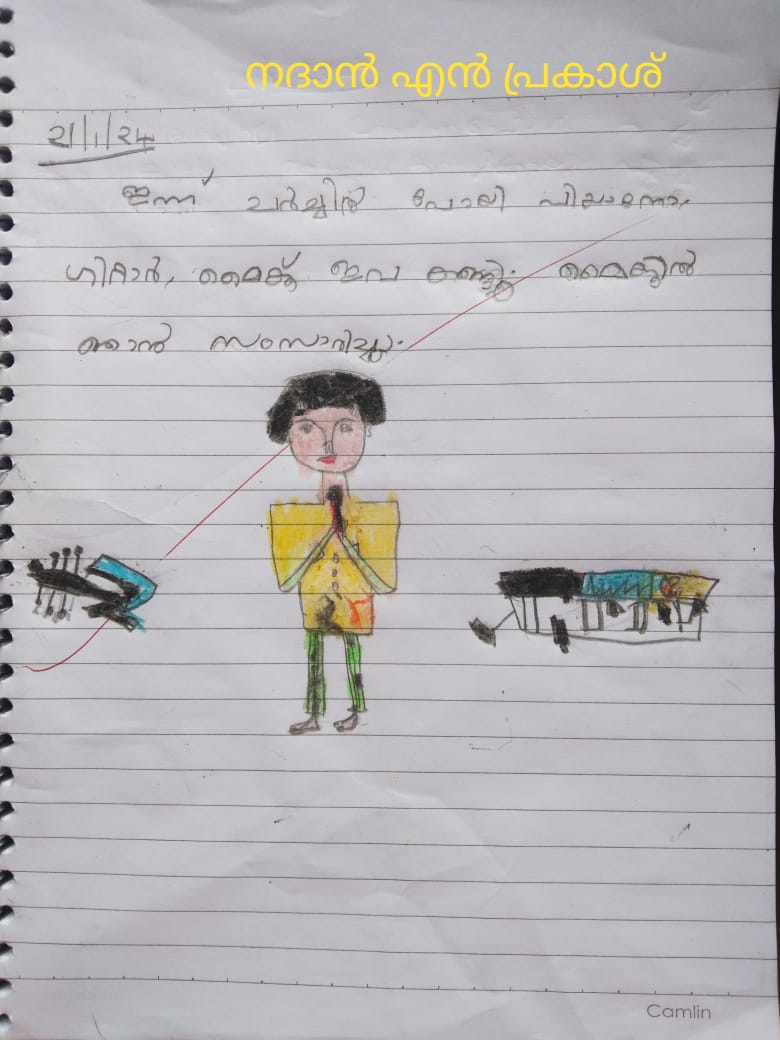 നദാൻ എൻ പ്രകാശ്
21/1/24
ഇന്ന് ചർച്ചിൽ പോയി പിയാനോ,
ഗിറ്റാർ, മൈക്ക് ഇവ കണ്ടു. മൈക്കിൽ
ഞാൻ സംസാരിച്ചു.
Camlin